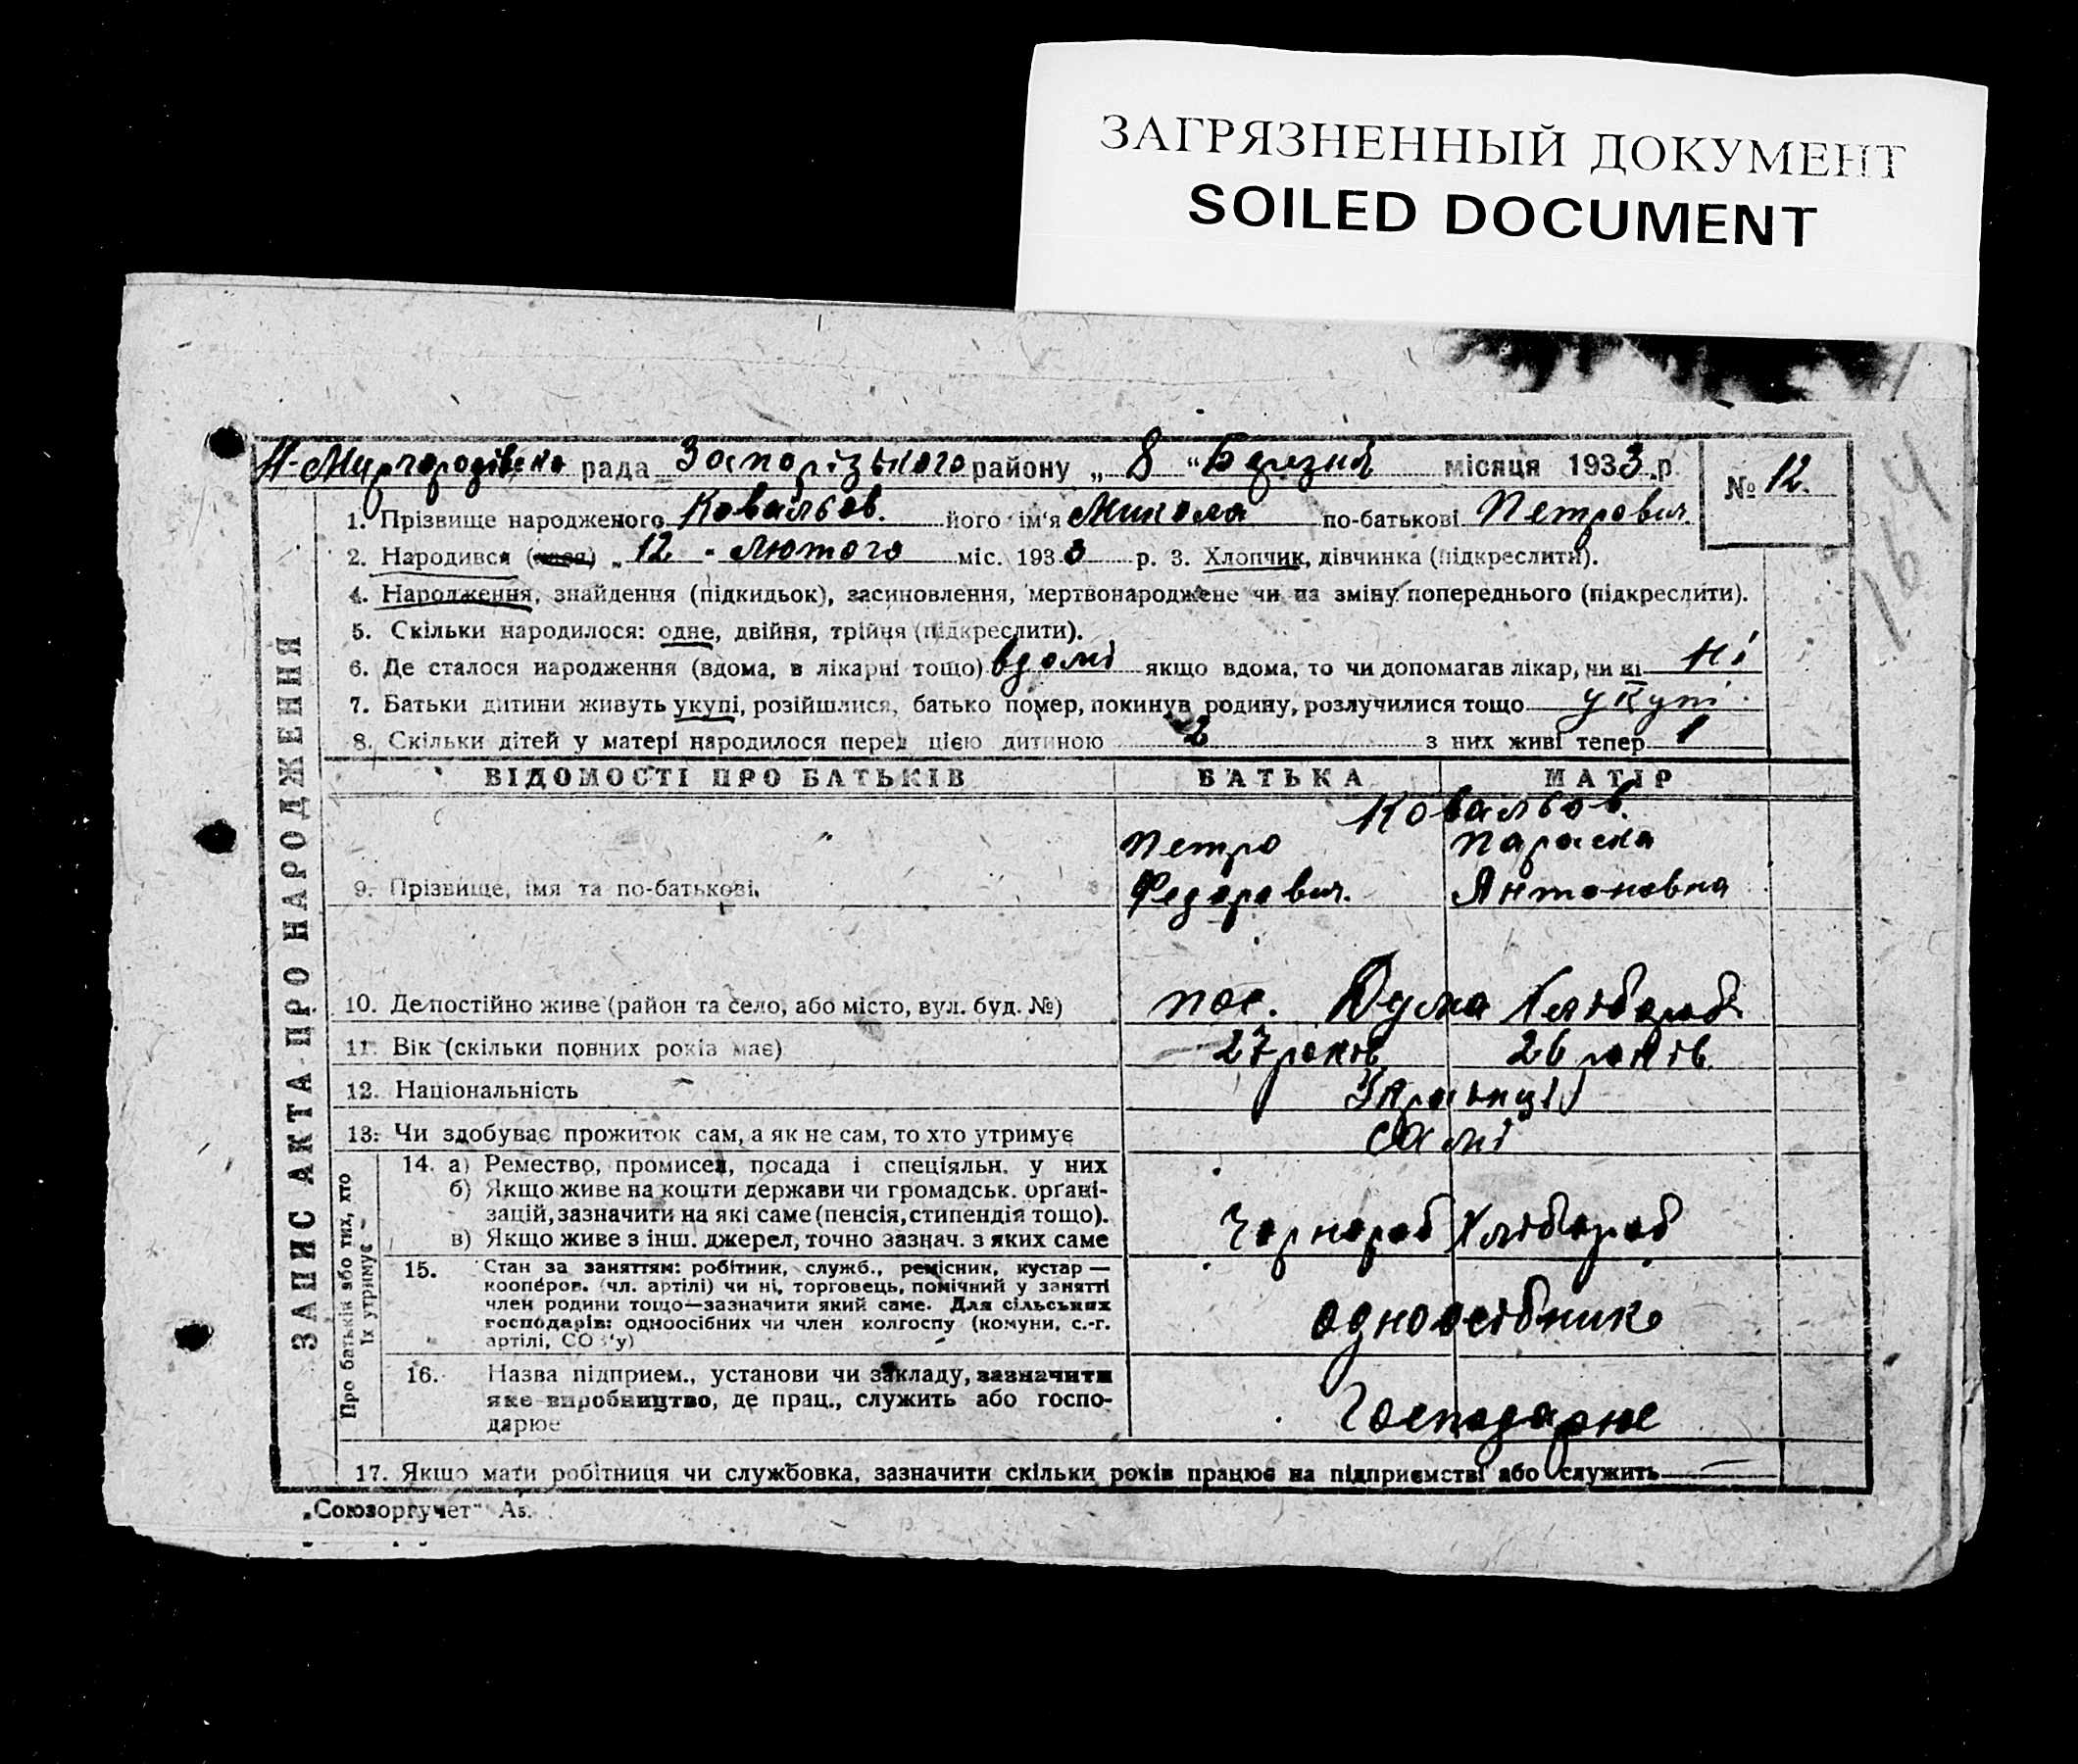 ЗАГРЯЗНЕННЫЙ ДОКУМЕНТ
SOILED DOCUMENT
164
ЗАПИС АКТА ПРО НАРОДЖЕННЯ
Н-Миргородівсько рада Запорізького району „ 8 “ Березня місяця 1933 р.
№ 12.
1. Прізвище народженого Ковальов. його ім'я Микола по-батькові Петрович
2. Народився „ 12 „ Лютого міс. 1933 р. 3. Хлопчик, дівчинка (підкреслити).
4. Народження, знайдення (підкидьок), засиновлення, мертвонароджене чи на зміну попереднього (підкреслити).
5. Скільки народилося: одне, двійня, трійня (підкреслити).
6. Де сталося народження (вдома, в лікарні тощо) вдомі якщо вдома, то чи допомагав лікар, чи ні ні
7. Батьки дитини живуть укупі, розійшлися, батько помер, покинув родину, розлучилися тощо укупі
8. Скільки дітей у матері народилося перед цією дитиною 2 з них живі тепер 1
ВІДОМОСТІ ПРО БАТЬКІВ БАТЬКА МАТІР
Ковальов.
Петро Параска
9. Прізвище, імя та по-батькові. Федорович. Антоновна
10. Де постійно живе (район та село, або місто, вул. буд. №) пос. Дума Хлібороб
11. Вік (скільки повних років має) 27 років 26 років.
12. Національність Українці
13. Чи здобуває прожиток сам, а як не сам, то хто утримує самі
Про батьків або тих, хто
їх утримує
14. а) Ремество, промисел, посада і спеціяльн. у них
б) Якщо живе на кошти держави чи громадськ. органі-
зацій, зазначити на які саме (пенсія, стипендія тощо).
в) Якщо живе з інш. джерел, точно зазнач. з яких саме
Чорнороб Хлібороб
15. Стан за заняттям: робітник, служб., ремісник, кустар —
коопéров. (чл. артілі) чи ні, торговець, помічний у занятті
член родини тощо—зазначити який саме. Для сільських
господарів: одноосібних чи член колгоспу (комуни, с.-г.
артілі, СО
одноосібник
16. Назва підприєм., установи чи закладу, зазначити
яке виробництво, де прац., служить або госпо-
дарює
Господарює
17. Якщо мати робітниця чи службовка, зазначити скільки років працює на підприємстві або служить —
„Союзоргучет“